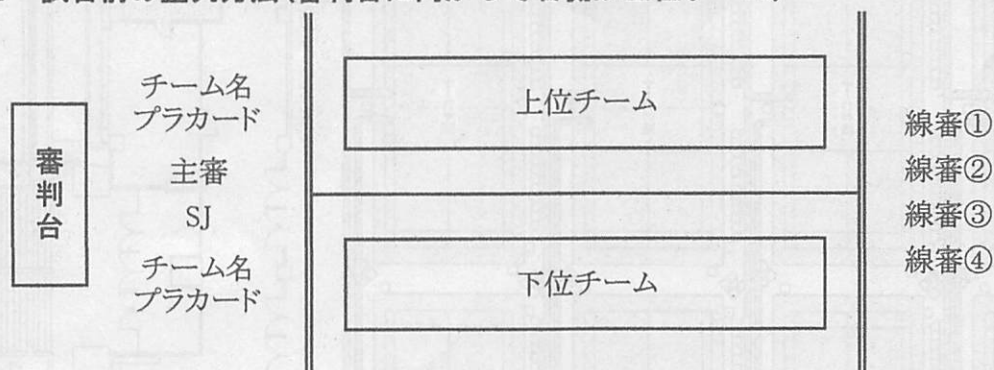 審判台
チーム名
プラカード
主審
SJ
チーム名
プラカード
上位チーム
下位チーム
線審①
線審②
線審③
線審④